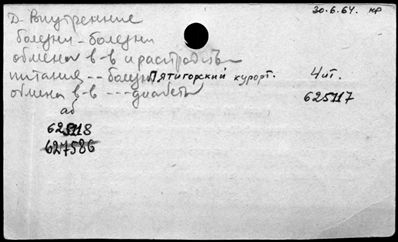 Д. Внутренние 30.6.64. кр
болезни - болезни
обмена в-в и расстройств
питания -- болезни Пятигорский курорт. 4 ит.
обмена в-в --- диабет 625117
аб
625118
627586